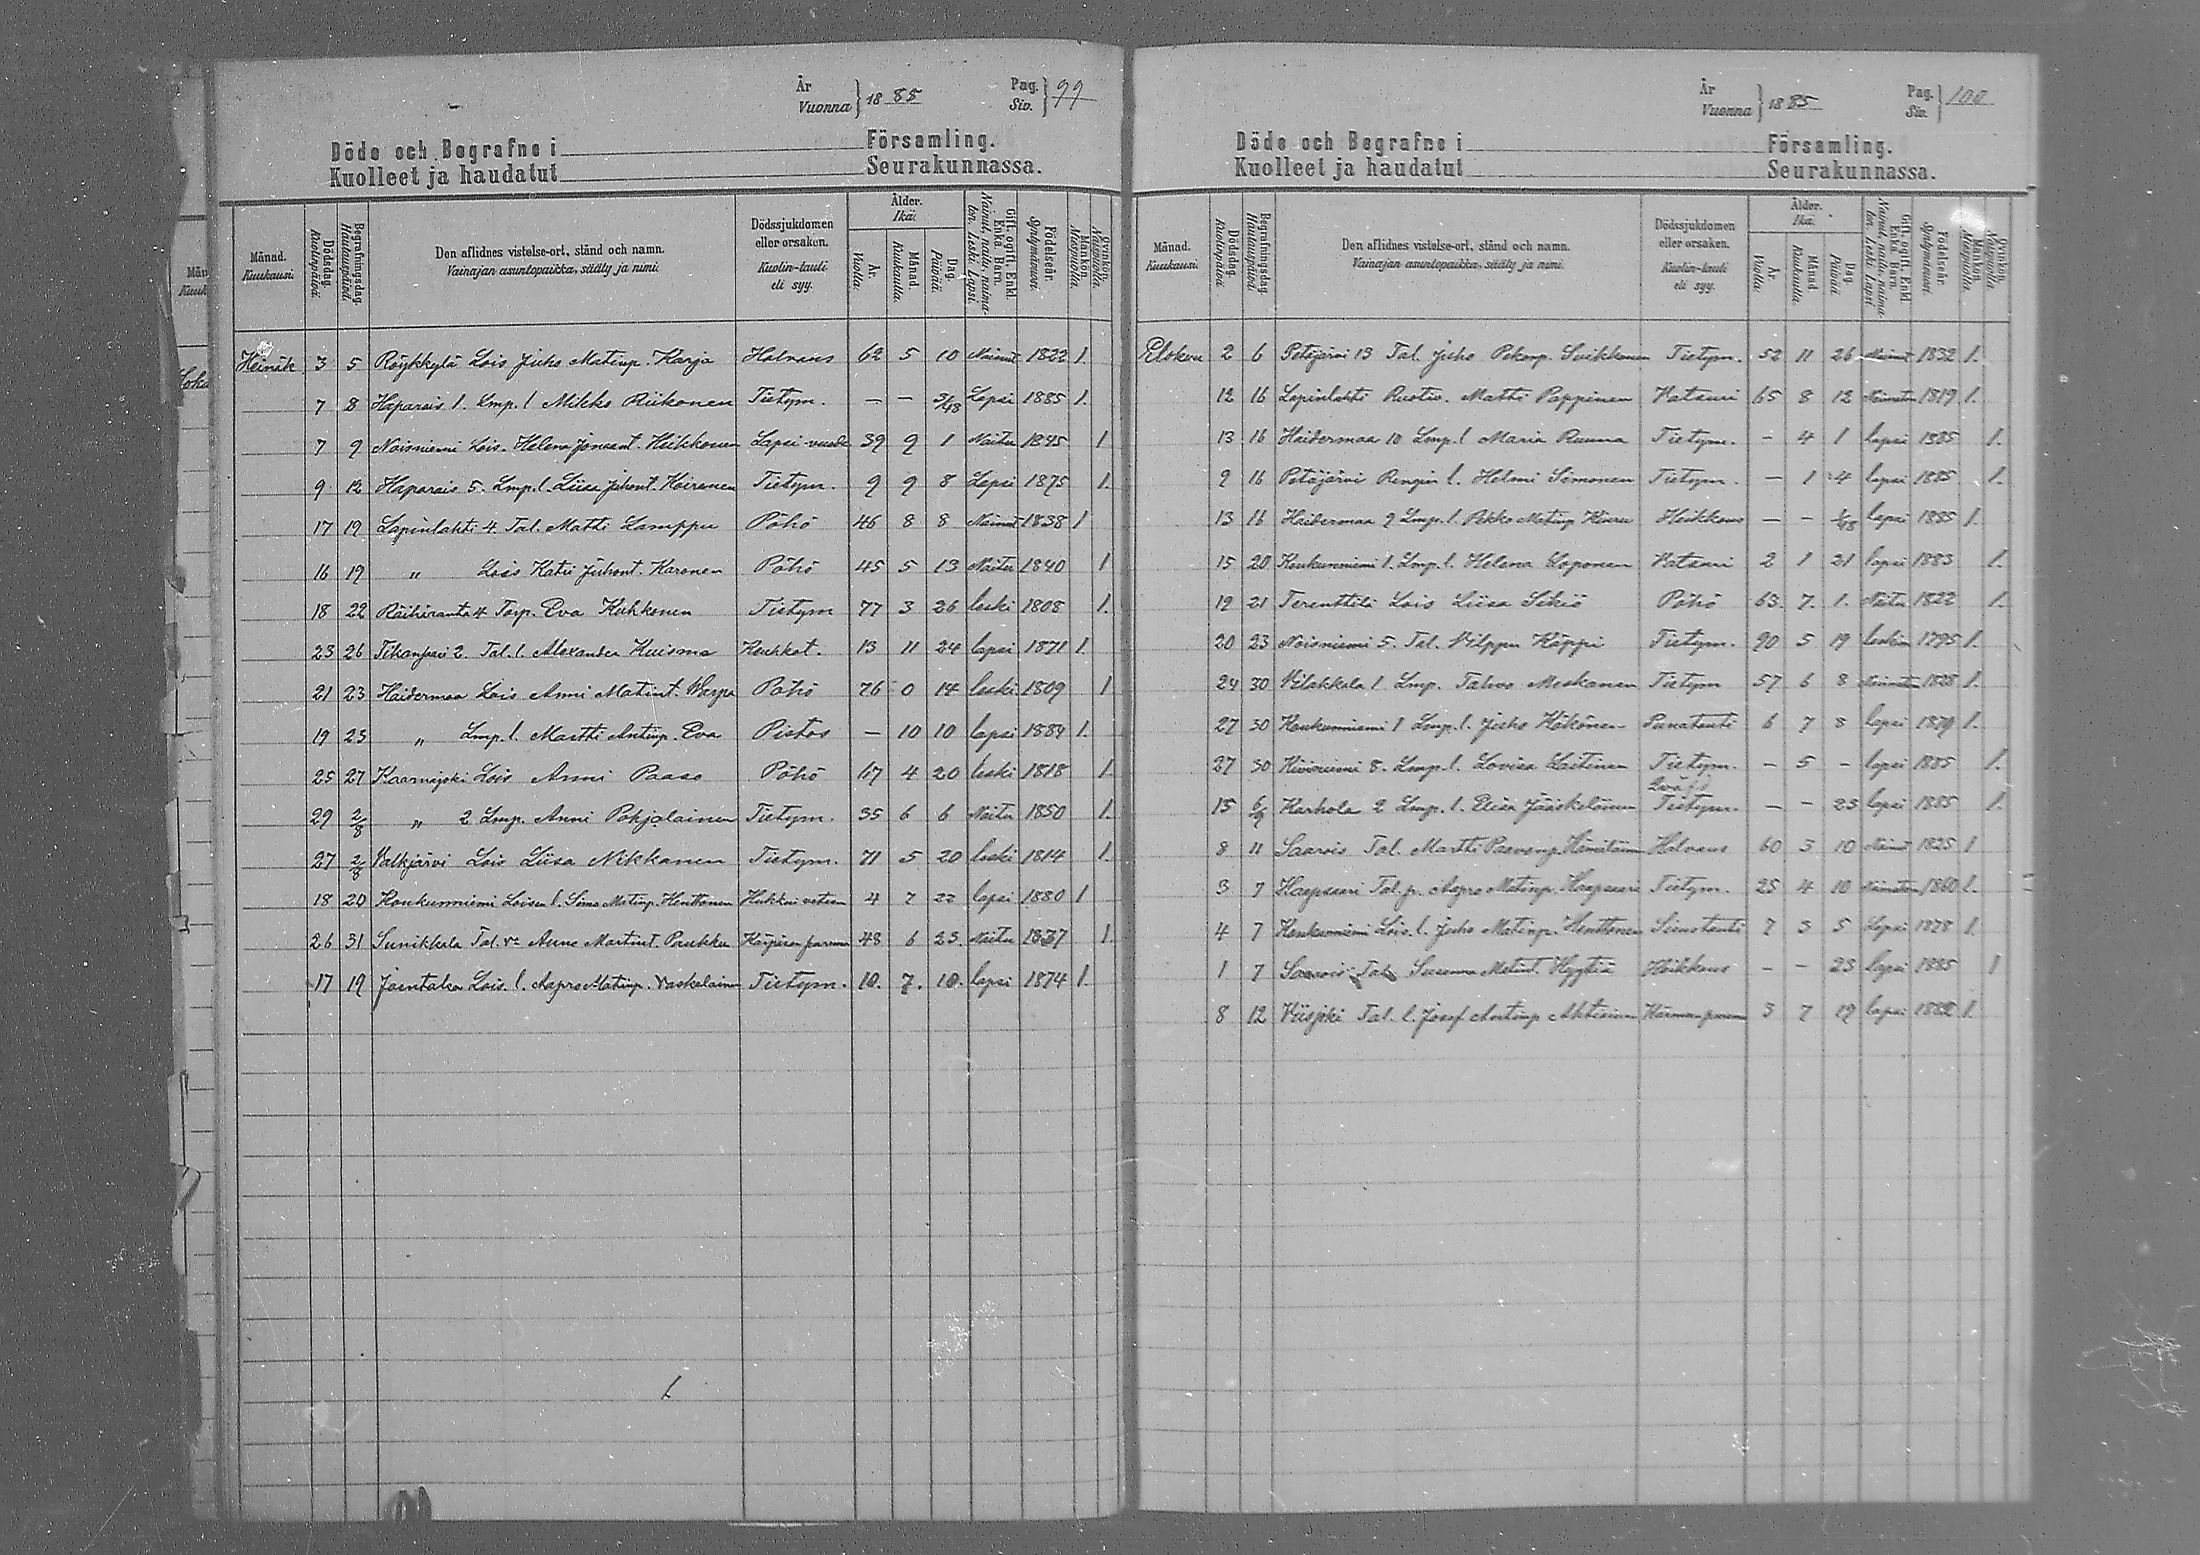 År
Vuonna } 1885 Pag. Siv. } 99
Döde och Begrafne i Församling.
Kuolleet ja haudatut Seurakunnassa.
Månad. Kuukausi. Dödsdag. Kuolinpäivä. Begrafningsdag. Hautauspäivä. Den aflidnes vistelse-ort, stånd och namn. Vainajan asuntopaikka, sääty ja nimi. Dödssjukdomen eller orsaken. Kuolin-tauti eli syy. Ålder. Ikä. År. Vuotta. Månad. Kuukautta. Dag. Päivää. Gift, ogift, Enkl. Enka, Barn. Nainut, naitu, naimaton, Leski, Lapsi. Födelseår. Syntymävuosi. Mankön. Miespuolta. Qvinkön. Naispuolta.
Heinäk 3 5 Röykkylä Lois Juho Matinp. Karja Halvaus 62 5 10 Nainut 1822 1.
7 8 Haparais 1. Lmp. l Mikko Riikonen Tietym. — — 3/48 Lapsi 1885 1.
7 9 Noisniemi Lois. Helena Joncant. Heikkonen Lapsi vuode 39 9 1 Naitu 1845 1
9 12 Haparais 5. Lmp. l. Liisa Juhont. Koiranen Tietym. 9 9 8 Lapsi 1875 1.
17 19 Lapinlahti 4. Tal. Matti Lamppu Pöhö 46 8 8 Nainut 1838 1
16 19 " Lois Katri Juhont. Karonen Pöhö 45 5 13 Naitu 1840 1
18 22 Räihäranta 4 Torp. Eva Kuhkonen Tietym 77 3 26 leski 1808 1.
23 26 Tihanpari 2. Tal. l. Alexander Kuisma Keuhkot. 13 11 24 lapsi 1871 1.
21 23 Haidermaa Lois Anni Matint. Warpa Pöhö 76 0 14 leski 1809 1
19 23 " Lmp. l. Martti Antinp. Eva Pistos — 10 10 lapsi 1884 1.
25 27 Kaarnajoki Lois Anni Paaso Pöhö 67 4 20 leski 1818 1.
29 2/8 " 2 Lmp. Anni Pohjolainen Tietym. 35 6 6 Naitu 1850 1.
27 2/8 Valkjärvi Lois Liisa Nikkanen Tietym. 71 5 20 leski 1814 1.
18 20 Konkunniemi Loisen l. Simo Matinp. Henttonen Hukkui veteen 4 7 22 lapsi 1880 1
26 31 Sunikkala Tal. v:o Anna Martint. Paukku 48 6 23 Naitu 1837 1.
17 19 Jaentaka Lois. l. Aapro Matinp. Vaskelainen Tietym. 10. 7. 10. lapsi 1874 1.
År
Vuonna } 1885 Pag. Siv. } 100
Döde och Begrafne i Församling.
Kuolleet ja haudatut Seurakunnassa.
Månad. Kuukausi. Dödsdag. Kuolinpäivä. Begrafningsdag. Hautauspäivä. Den aflidnes vistelse-ort, stånd och namn. Vainajan asuntopaikka, sääty ja nimi. Dödssjukdomen eller orsaken. Kuolin-tauti eli syy. Ålder. Ikä. År. Vuotta. Månad. Kuukautta. Dag. Päivää. Gift, ogift, Enkl. Enka, Barn. Nainut, naitu, naimaton, Leski, Lapsi. Födelseår. Syntymävuosi. Mankön. Miespuolta. Qvinkön. Naispuolta.
Elokuu 2 6 Petäjärvi 13 Tal. Juho Pekonp. Suikkonen Tietym. 52 11 26 Nainut 1832 1.
12 16 Lapinlahti Ruotiv. Matti Pappinen Vatsuri 65 8 12 Naimaton 1819 1.
13 16 Haidermaa 10 Lmp. l Maria Ruuna Tietym. - 4 1 lapsi 1885 1.
9 16 Petäjärvi Rengin l. Helmi Simonen Tietym. — 1 4 lapsi 1885 1.
13 16 Haidermaa 9 Lmp. l. Pekko Matinp Kiuru Heikkous — - 1/48 lapsi 1885 1.
15 20 Konkunniemi 1. Lmp. l. Helena Loponen Vatsuri 2 1 21 lapsi 1883 1.
19 21 Terenttilä Lois Liisa Sikiö Pöhö 63. 7. 1. Naitu 1822 1.
20 23 Noisniemi 5. Tal. Vilppu Käppi Tietym. 90 5 19 leskim 1795 1.
24 30 Vilakkala 1 Lmp. Tahvo Meskanen Tietym 57 6 8 Naimaton 1828 1.
27 30 Konkunniemi 1 Lmp. l. Juho Häkönen Punatauti 6 7 3 lapsi 1879 1.
27 30 Kiviniemi 8. Lmp. l. Lovisa Laitinen Tietym. - 5 - lapsi 1885 1.
15 6/9 Karhola 2 Lmp. l. Elisa Jääskeläinen Tietym. — - 23 lapsi 1885 1.
8 11 Saarois Tal. Martti Paavonp. Hämäläinen Halvaus 60 3 10 Nainut 1825 1
3 7 Haapsaari Tal. p. Aapro Matinp. Haapsaari Tietym. 25 4 10 Naimaton 1860 1.
4 7 Konkunniemi Lois. l. Juho Matinp. Henttonen 7 3 5 Lapsi 1878 1.
1 7 Saarois Tal. Susanna Matint. Hyytiä Heikkous - - 23 lapsi 1885 1
8 12 Viisjoki Tal. l. Josef Antinp Ahtiainen 3 7 19 lapsi 1882 1.